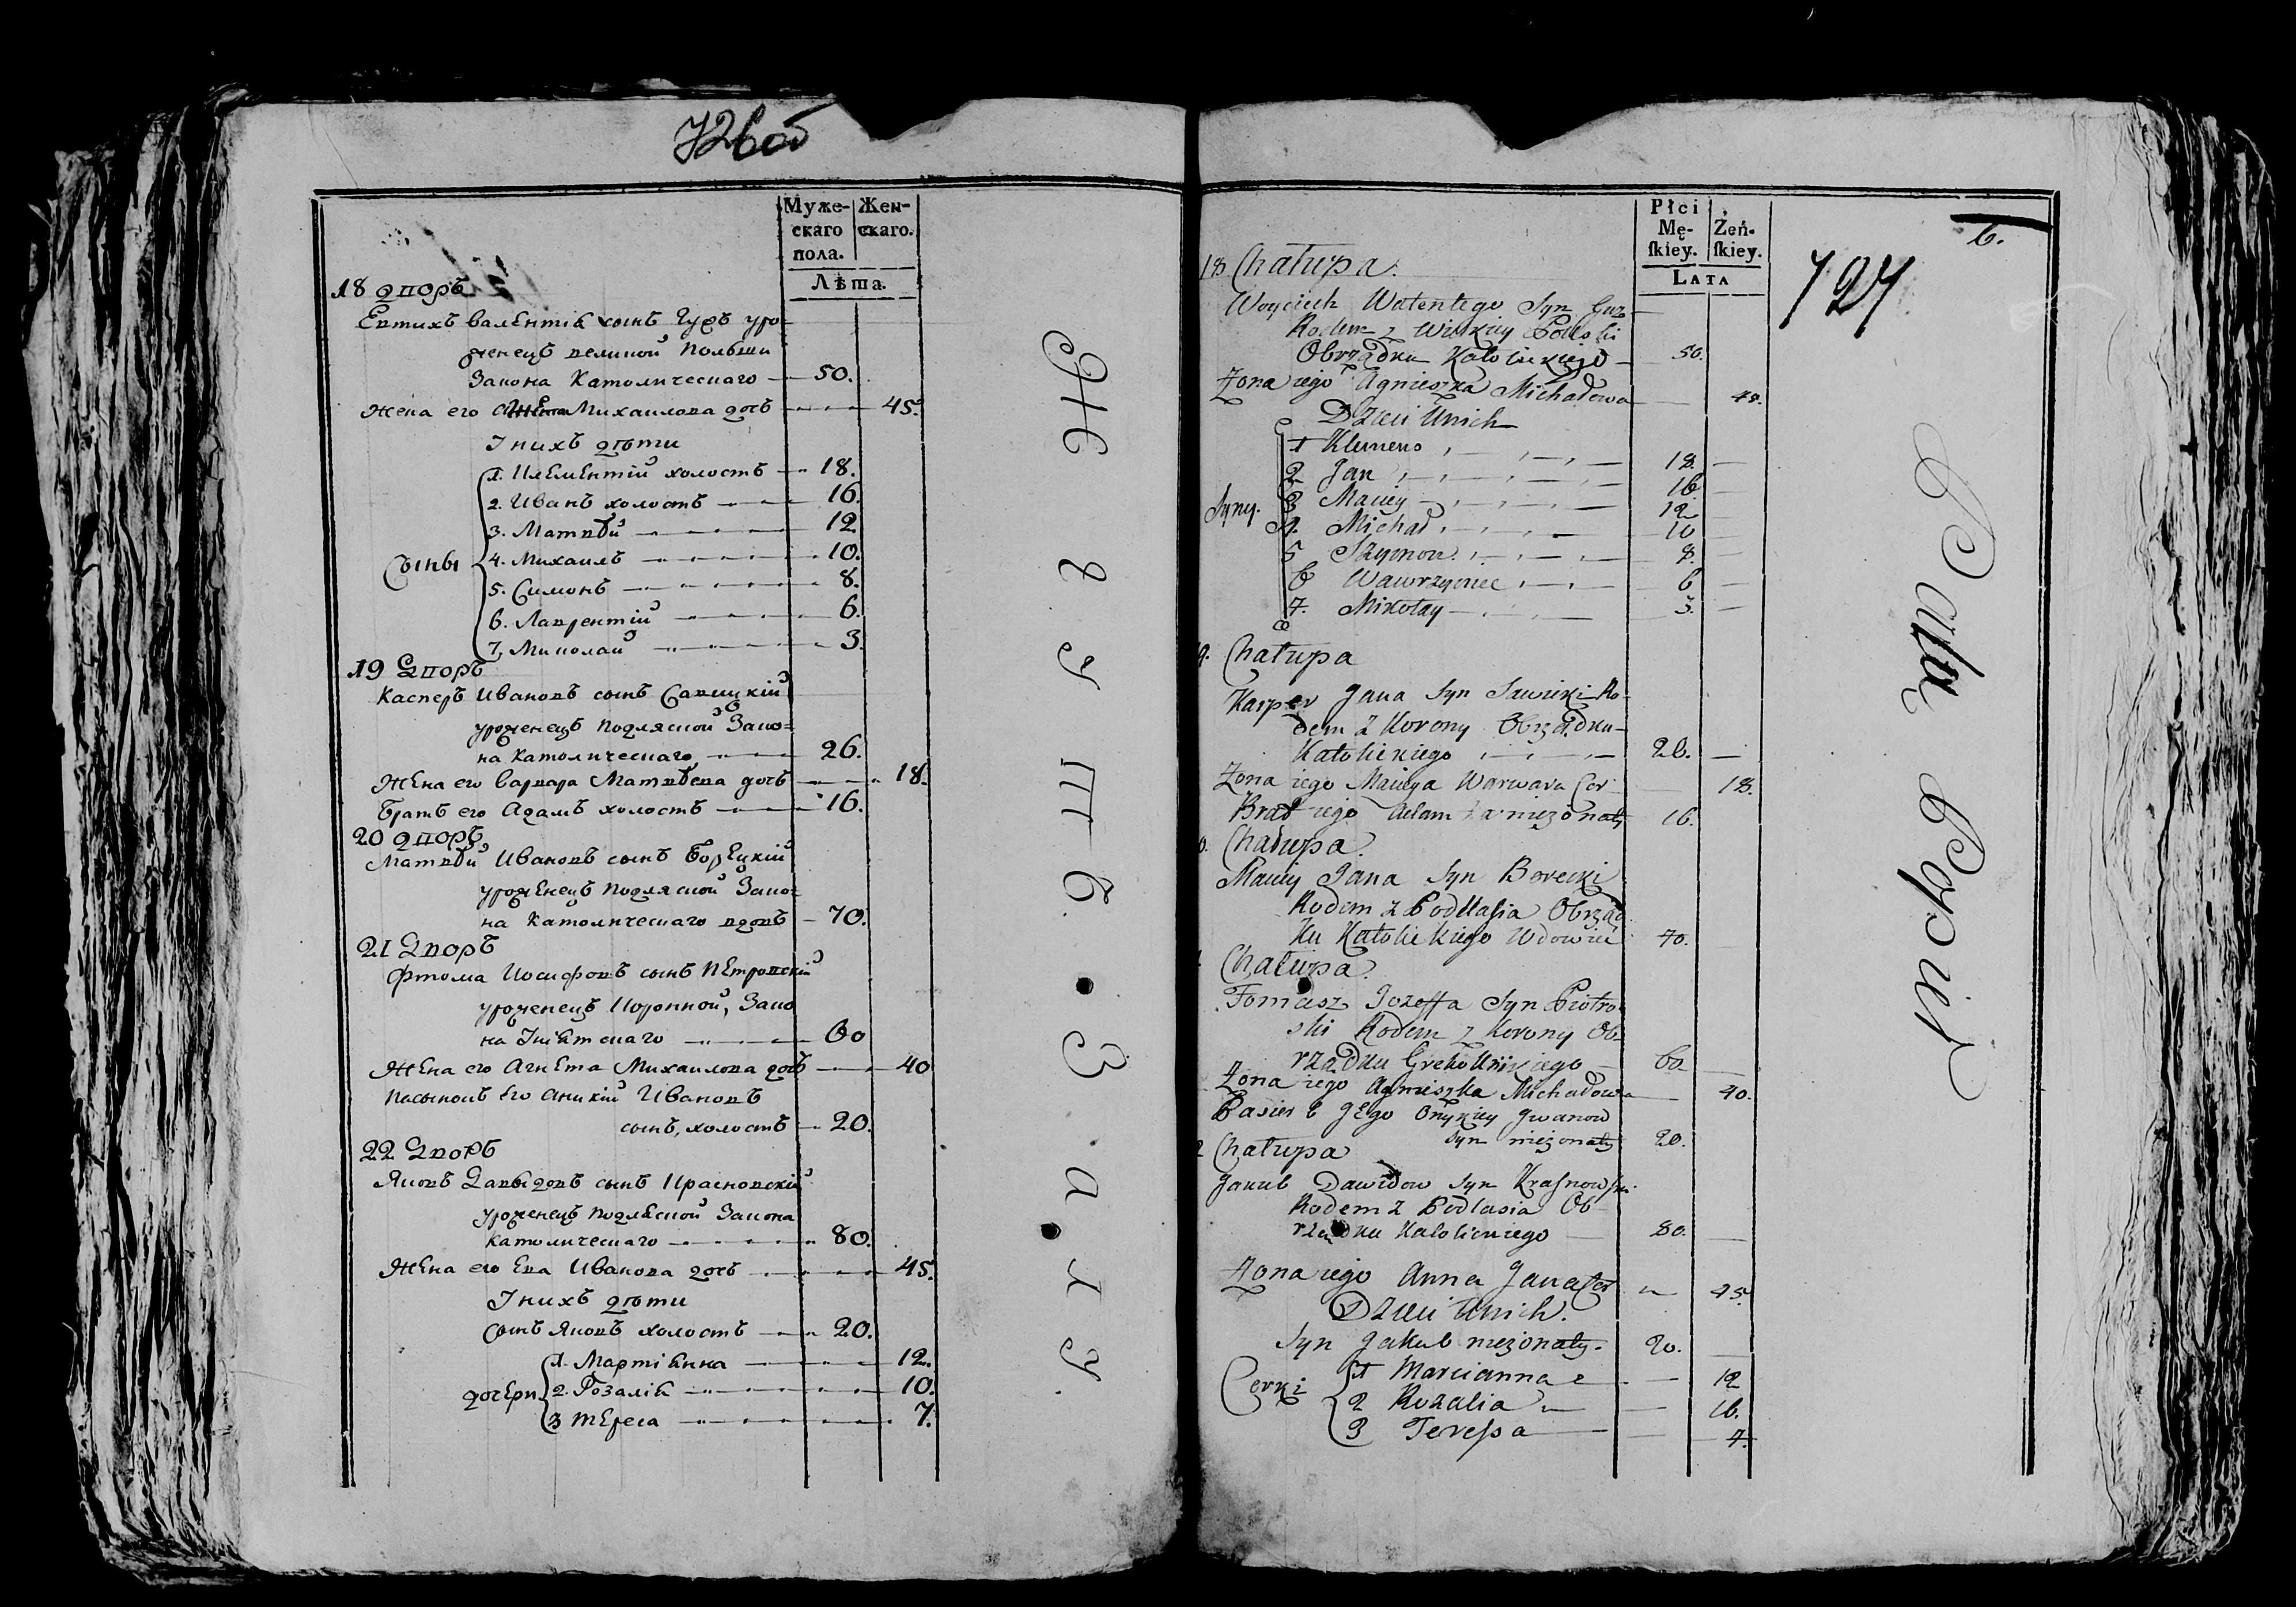 726об
Муже-
скаго
пола.
Жен-
скаго.
Лѣта.
18 Дворъ
сынъ Гузъ уро
женецъ великой Польши
Закона Католическаго 50.
Жена его Михаилова дочь 45.
У нихъ дѣти
Сыны
1. Климентій холостъ 18.
2. Иванъ холостъ 16.
3. Матвѣй 12
4. Михаилъ 10.
5. Симонъ 8.
6. Лаврентій 6.
7. Миколай 3.
19 Дворъ
Касперъ Ивановъ сынъ Савицкій
уроженецъ Подляской Зако=
на Католическаго 26.
Жена его Варвара Матвѣева дочь 18.
Братъ его Адамъ холостъ 16.
20 Дворъ
Матвѣй Ивановъ сынъ Борецкій
уроженецъ Подляской Зако=
на Католическаго вдовъ 70.
21 Дворъ
Фтома Иосифовъ сынъ Петровскій
уроженецъ Коронной, Зако
на Уніатскаго 60
Жена его Агнета Михаилова дочь 40
Пасынокъ его Аникій Ивановъ
сынъ, холостъ 20.
22 Дворъ
Яковъ Давыдовъ сынъ Красновскій
уроженецъ Подляской Закона
Католическаго 80.
Жена его Ева Иванова дочь 45.
У нихъ дѣти
сынъ Яковъ холостъ 20.
дочери
1. Мартіанна 12.
2. Розаліа 10.
3 Тереса 7.
Płci
Mę-
skiey.
Żeń-
skiey.
LATA
6.
727
18 Chałupa.
Woyciech Walentego Syn Guz
Rodem z Wielkiey Polski
Obrządku Katolickiego 50.
Zona iego Agnieszka Michałowa 45.
Dzieci Unich
Syny.
1 Klemens 18.
2 Jan 16
3 Maciey 12
4. Michał 10
5 Szymon 8.
6 Wawrzyniec 6
7. Mikołay 3.
9. Chałupa
Kasper Jana Syn Sawicki Ro-
dem z Korony Obrządku
Katolickiego 26.
Zona iego Macieya Warwara Cor 18.
Brat iego Adam nieżonaty 16.
0. Chałupa.
Maciey Jana Syn Borecki
Rodem z Podlasia Obrząd
ku Katolickiego Wdowiec 70.
Chałupa.
Tomasz Jozeffa Syn Piotro
ski Rodem z Korony Ob-
rządku Greko Unickiego 60
Zona iego Agnieszka Michałowa 40.
Pasierb Jego Onykiey Jwanow
syn nieżonaty 20.
2 Chałupa
Jakub Dawidow Syn Krasnowski.
Rodem z Podlasia Ob
rządku Katolickiego 80.
Zona iego Anna Jana Cor 45.
Dzieci Unich.
Syn Jakub nieżonaty. 20.
Corki
1 Marcianna 12
2 Rozalia 10.
3 Teressa 7.